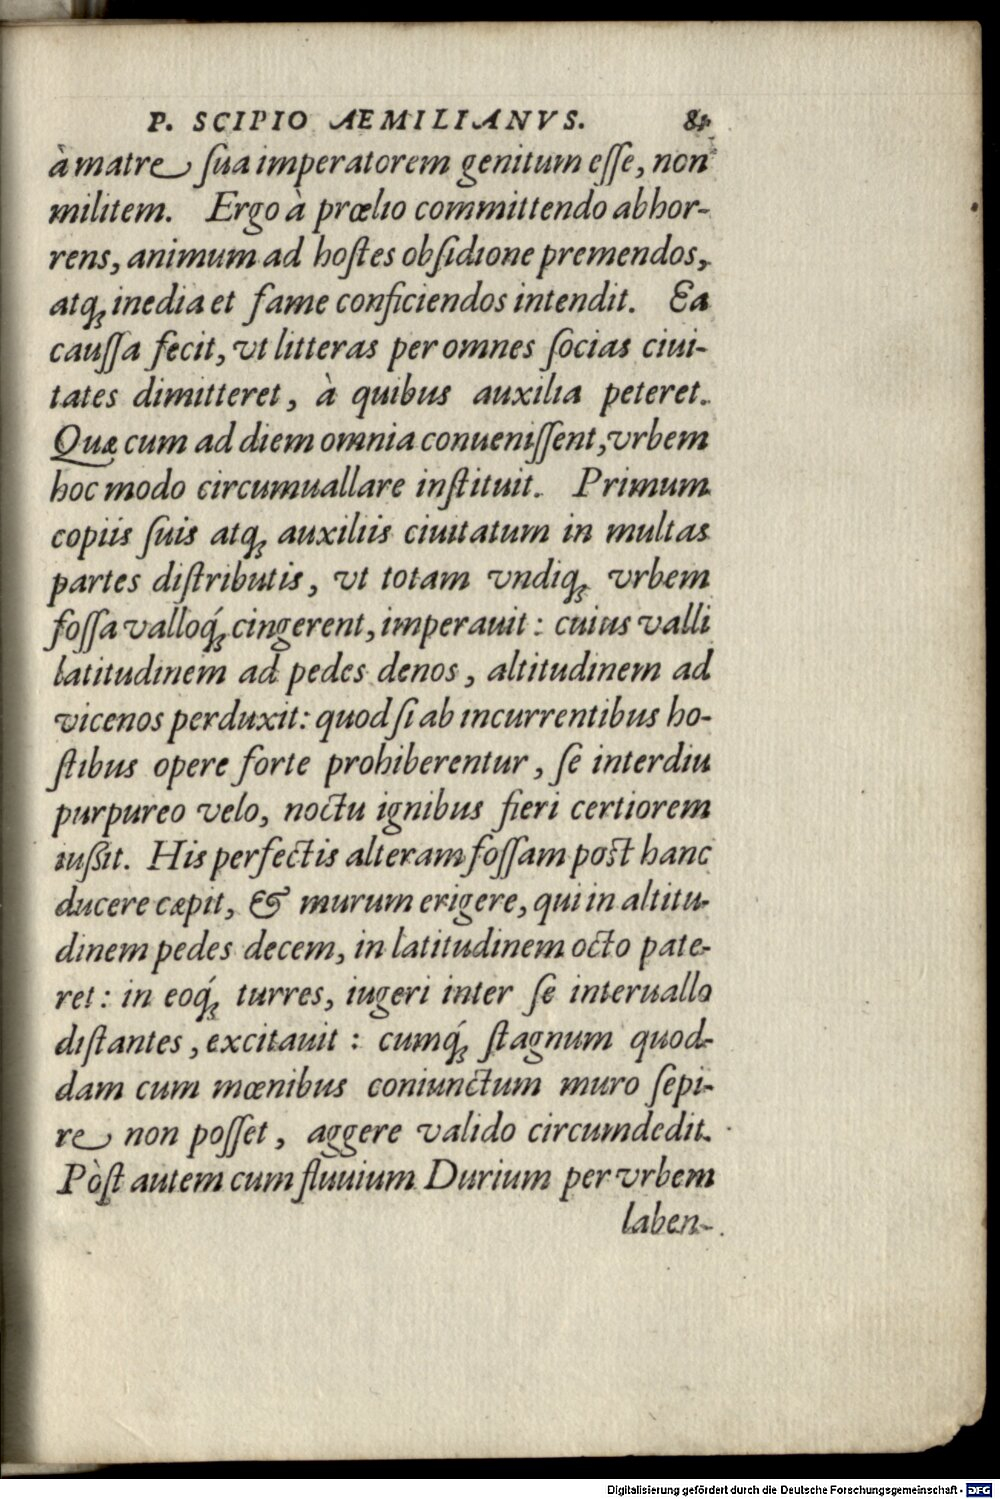 P. SCIPIO AEMILIANVS. 81
à matre sua imperatorem genitum esse, non
militem. Ergo à prœlio committendo abhor-
rens, animum ad hostes obsidione premendos,
atq; inedia et fame conficiendos intendit. Ea
caussa fecit, vt litteras per omnes socias ciui-
tates dimitteret, à quibus auxilia peteret.
Quæ cum ad diem omnia conuenissent, vrbem
hoc modo circumuallare instituit. Primum
copiis suis atq; auxiliis ciuitatum in multas
partes distributis, vt totam vndiq; vrbem
fossa valloq́; cingerent, imperauit: cuius valli
latitudinem ad pedes denos, altitudinem ad
vicenos perduxit: quod si ab incurrentibus ho-
stibus opere forte prohiberentur, se interdiu
purpureo velo, noctu ignibus fieri certiorem
iußit. His perfectis alteram fossam post hanc
ducere cæpit, & murum erigere, qui in altitu-
dinem pedes decem, in latitudinem octo pate-
ret: in eoq́; turres, iugeri inter se interuallo
distantes, excitauit: cumq́; stagnum quod-
dam cum mœnibus coniunctum muro sepi-
re non posset, aggere valido circumdedit.
Pòst autem cum fluuium Durium per vrbem
laben-
Digitalisierung gefördert durch die Deutsche Forschungsgemeinschaft - DFG